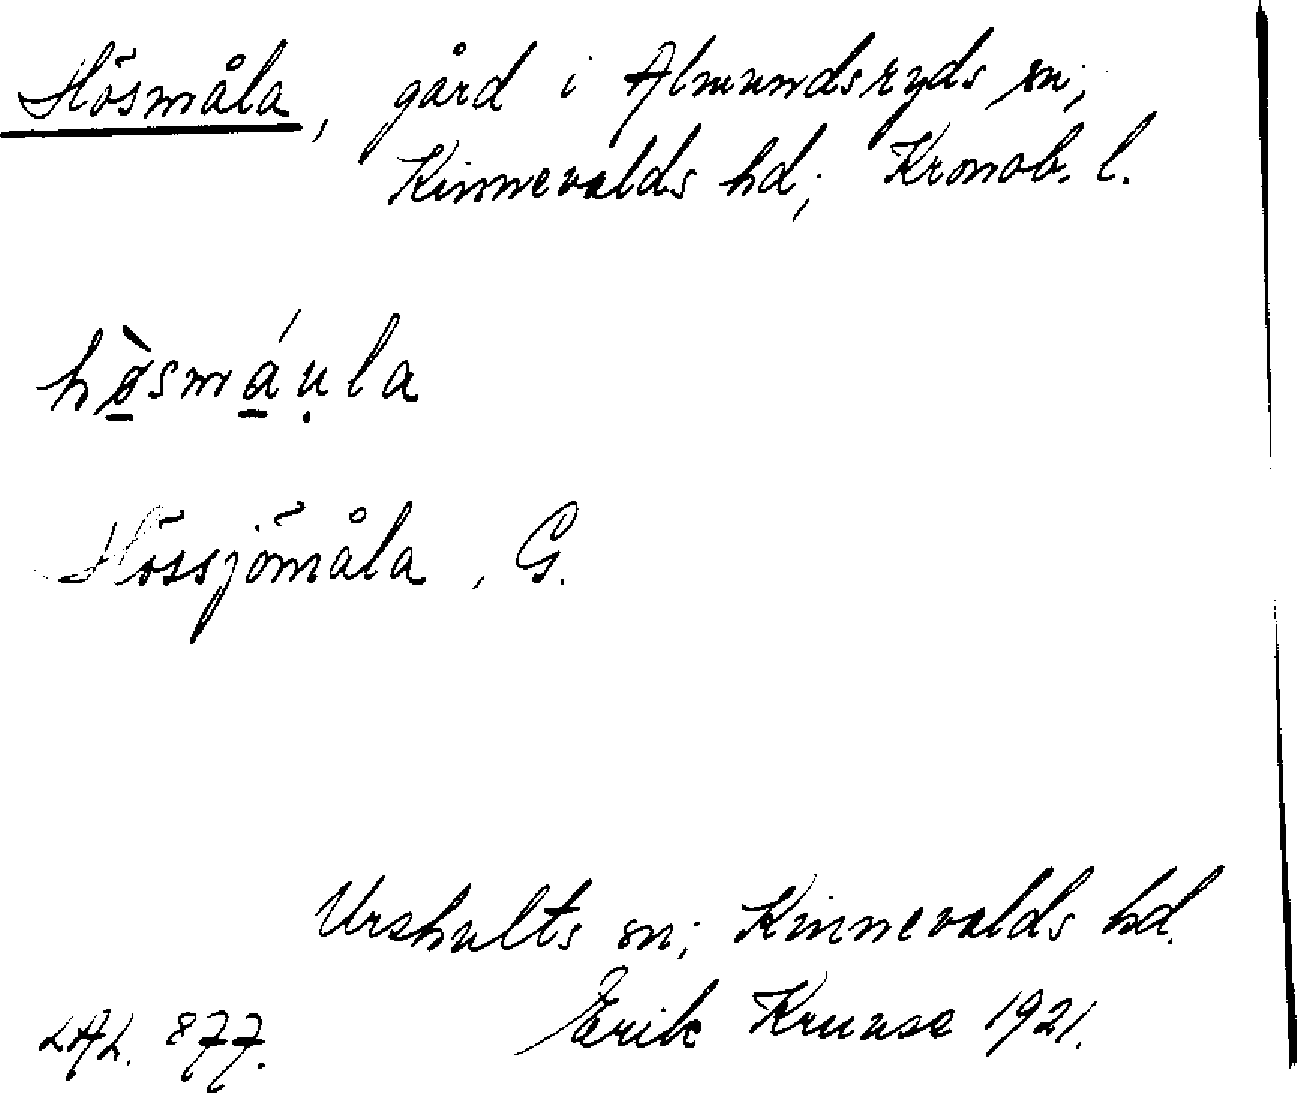 Hösmåla, gård i Almundsryds sn;
Kinnevalds hd; Kronob. l.
hø̱̀smá̱ụla
Hössjömåla, G.
Urshults sn; Kinnevalds hd.
LAL. 877. Erik Kruuse 1921.